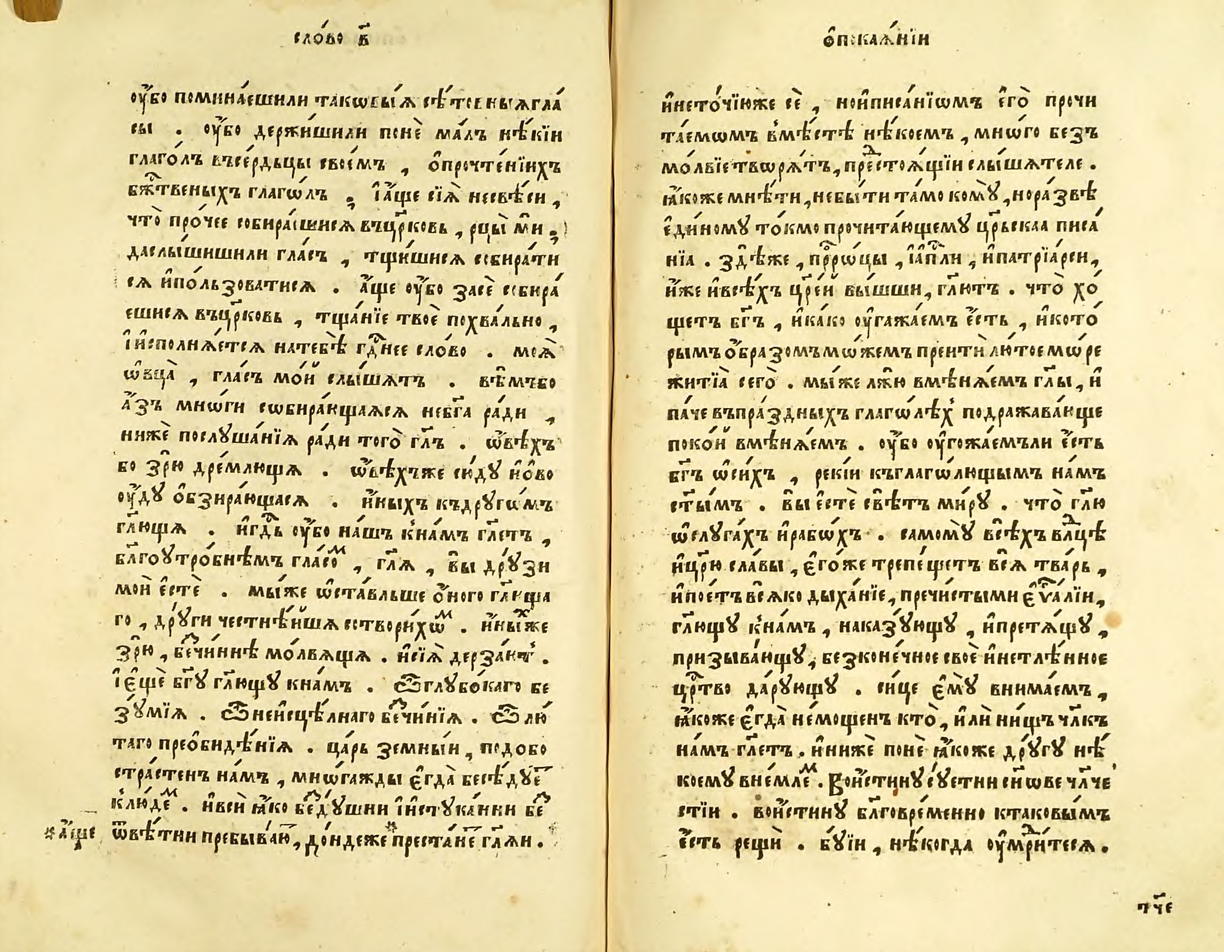 сло́во в҃
оу҆́бо помина́еши ли такѡвы́ѧ сѣ́товныѧ гла́
сы . оу҆́бо держи́ши ли понѐ ма́лъ нѣ́кїи
глаго́лъ въ се́рдьцы свое́мъ , ѡ҆ прочте́нїихъ
бж҃твеныхъ глаго́лъ ; і҆ а҆́ще сїѧ̀ не свѣ́си ,
что̀ про́чее собира́ешисѧ въ цр҃ковь , рцы́ ми ;
да слы́шиши ли гла́съ , тщи́шисѧ събира́ти
сѧ и҆ по́льзоватисѧ . а҆́ще оу҆́бо за сѐ събира́
ешисѧ въ цр҃ковь , тща́нїе твоѐ похва́льно ,
і҆ и҆сполнѧ́етсѧ на тебѣ̀ гдⷭ҇нее сло́во . моѧ̀
ѡ҆́вца̀ , гла́съ мо́й слы́шатъ . вѣ́мъ бо
а҆́зъ мно́ги събира́ющаѧсѧ не бг҃а ра́ди ,
нижѐ послꙋша́нїѧ ра́ди того̀ гл҃ъ . ѡ҆́вѣхъ
бо зрю̀ дре́млющѧ . ѡ҆́вѣхъ же сю́дꙋ и҆ ѻ҆́во
оу҆́дꙋ ѡ҆бзира́ющасѧ . и҆́ныхъ къ дрꙋги́мъ
гл҃ющѧ . и҆гдѣ́ оу҆́бо на́шъ к на́мъ гл҃етъ ,
бл҃гоꙋтро́бнѣмъ гла́соⷨ , гл҃ѧ , вы̀ дрꙋ́зи
мои̑ є҆стѐ . мы́ же ѡ҆ста́вльше ѻ҆́ного гл҃юща
го , дрꙋ́ги честнѣ́йшѧ сътвори́хѡⷨ . и҆ ны́хже
зрю̀ , беⷥчи́ннѣ мо́лвѧщѧ . и҆ сїѧ̀ дерза́ютъ .
і҆ є҆щѐ бг҃ꙋ гл҃ющꙋ к на́мъ . Ѽ глꙋбо́каго бе
зꙋ́мїѧ . Ѽ неисцѣ́лнаго беⷥчи́нїѧ . Ѽ лю́
таго преѡби́дѣнїѧ . ца́рь земны́и , подобо
стра́стенъ на́мъ , мно́гажды є҆гда̀ бесѣ́дꙋеⷮ
к лю́деⷨ . и҆ вси́ ꙗ҆́ко беⷥдꙋ́шни і҆ и҆стꙋка́нни беⷥ
* а҆́ще ѿвѣ́тни пребыва́юⷮ , до́ндеже * преста́неⷮ гл҃ѧи .
ѡ҆ покаѧ́нїи
и҆ не то́чїю же сѐ , но и҆ писа́нїѡмъ є҆го̀ прочи
та́емѡмъ в мѣ́стѣ нѣ́коемъ , мно́го безъ
мо́лвїе творѧ́тъ , престоѧ́щїи слы́шателе .
ꙗ҆́коже мнѣ́ти , не бы́ти та́мо комꙋ̀ , но ра́звѣ
є҆ди́номꙋ то́кмо прочита́ющемꙋ црⷭ҇каа писа́
нїа . здѣ́ же , прⷪ҇ро́цы , і҆ а҆пⷭ҇ли , и҆ патрїа́рси ,
и҆́же и҆ всѣ́хъ цр҃е́й вы́шши , гл҃ютъ . что̀ хо́
щетъ бг҃ъ , и҆ ка́ко оу҆гажа́емъ є҆́сть , и҆ кото́
рымъ ѻ҆́бразомъ мо́жемъ преитѝ лю́тое мо́ре
житїа̀ сего̀ . мы́ же лжю̀ вмѣнѧ́емъ гл҃ы , и҆
па́че въ пра́здныхъ глаго́лѣхъ подража́юще
поко́й вмѣнѧ́емъ . оу҆́бо оу҆гожа́емъ ли є҆́сть
бг҃ъ ѡ҆ си́хъ , ре́кїи къ глаго́лющымъ на́мъ
ст҃ы́мъ . вы̀ є҆стѐ свѣ́тъ ми́рꙋ . что̀ гл҃ю
ѡ҆ слꙋга́хъ и҆ рабѡ́хъ . самомꙋ̀ всѣ́хъ влⷣцѣ
и҆ цр҃ю̀ сла́вы , є҆го́же трепе́щетъ всѧ̀ тва́рь ,
и҆ пое́тъ всѧ́ко дыха́нїе , пречи́стыми є҆ѵⷢ҇а́лїи ,
гл҃ющꙋ к на́мъ , наказꙋ́ющꙋ , и҆ претѧ́щꙋ ,
призыва́ющꙋ , безконе́чное своѐ и҆ нетлѣ́нное
црⷭ҇тво да́рꙋющꙋ . си́це є҆мꙋ̀ внима́емъ ,
ꙗ҆́коже є҆гда̀ не́мощенъ кто̀ , и҆лѝ ни́щъ чл҃къ
на́мъ гл҃етъ . и҆ нижѐ понѐ ꙗ҆́коже дрꙋ́гꙋ нѣ́
коемꙋ вне́млеⷨ . Вои́стинꙋ сꙋ́етни сы́нове чл҃че
стїи . вои́стинꙋ бл҃говре́менно к таковы́мъ
є҆́сть рещѝ . бꙋ́їи , нѣ́когда оу҆мꙋдри́тесѧ .